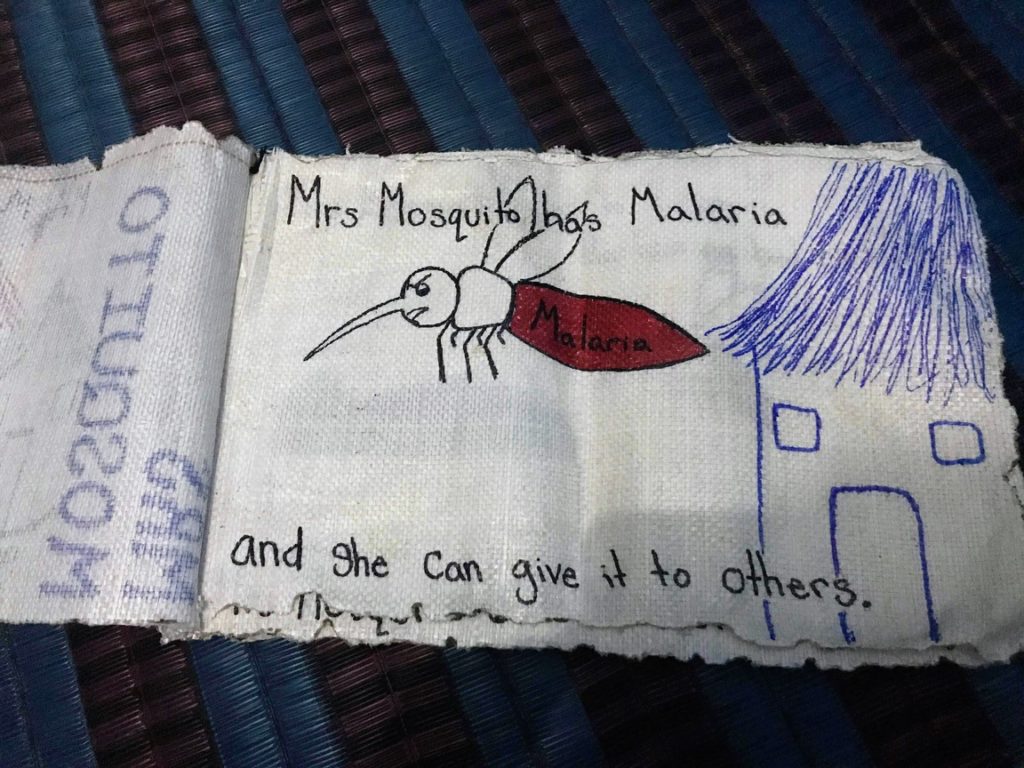 MRS
MOSQUITO
Mrs Mosquito has Malaria
Malaria
and she can give it to others.